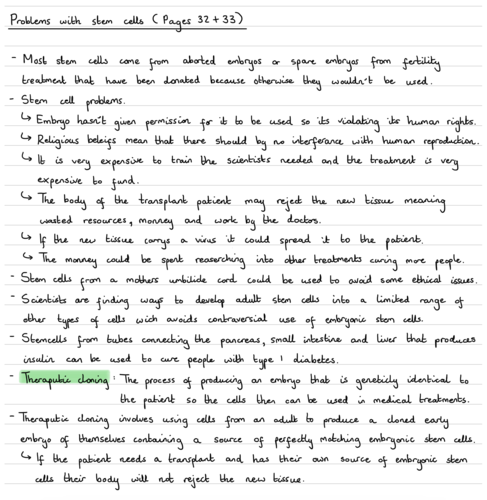 Problems with stem cells (Pages 32 + 33)
- Most stem cells come from aborted embryos or spare embryos from fertility
treatment that have been donated because otherwise they wouldn't be used.
- Stem cell problems.
↳ Embryo hasn't given permission for it to be used so its violating its human rights.
↳ Religious beleifs mean that there should by no interferance with human reproduction.
↳ It is very expensive to train the scientists needed and the treatment is very
expensive to fund.
↳ The body of the transplant patient may reject the new tissue meaning
wasted resources, monney and work by the doctors.
↳ If the new tissue carrys a virus it could spread it to the patient.
↳ The monney could be spent reaserching into other treatments curing more people.
- Stem cells from a mothers umbilide cord could be used to avoid some ethical issues.
- Scientists are finding ways to develop adult stem cells into a limited range of
other types of cells wich avoids contraversial use of embryonic stem cells.
- Stemcells from tubes connecting the pancreas, small intestine and liver that produces
insulin can be used to cure people with type 1 diabetes.
- Theraputic cloning: The process of producing an embryo that is geneticly identical to
the patient so the cells then can be used in medical treatments.
- Theraputic cloning involves using cells from an adult to produce a cloned early
embryo of themselves containing a source of perfectly matching embryonic stem cells.
↳ If the patient needs a transplant and has their own source of embryonic stem
cells their body will not reject the new tissue.